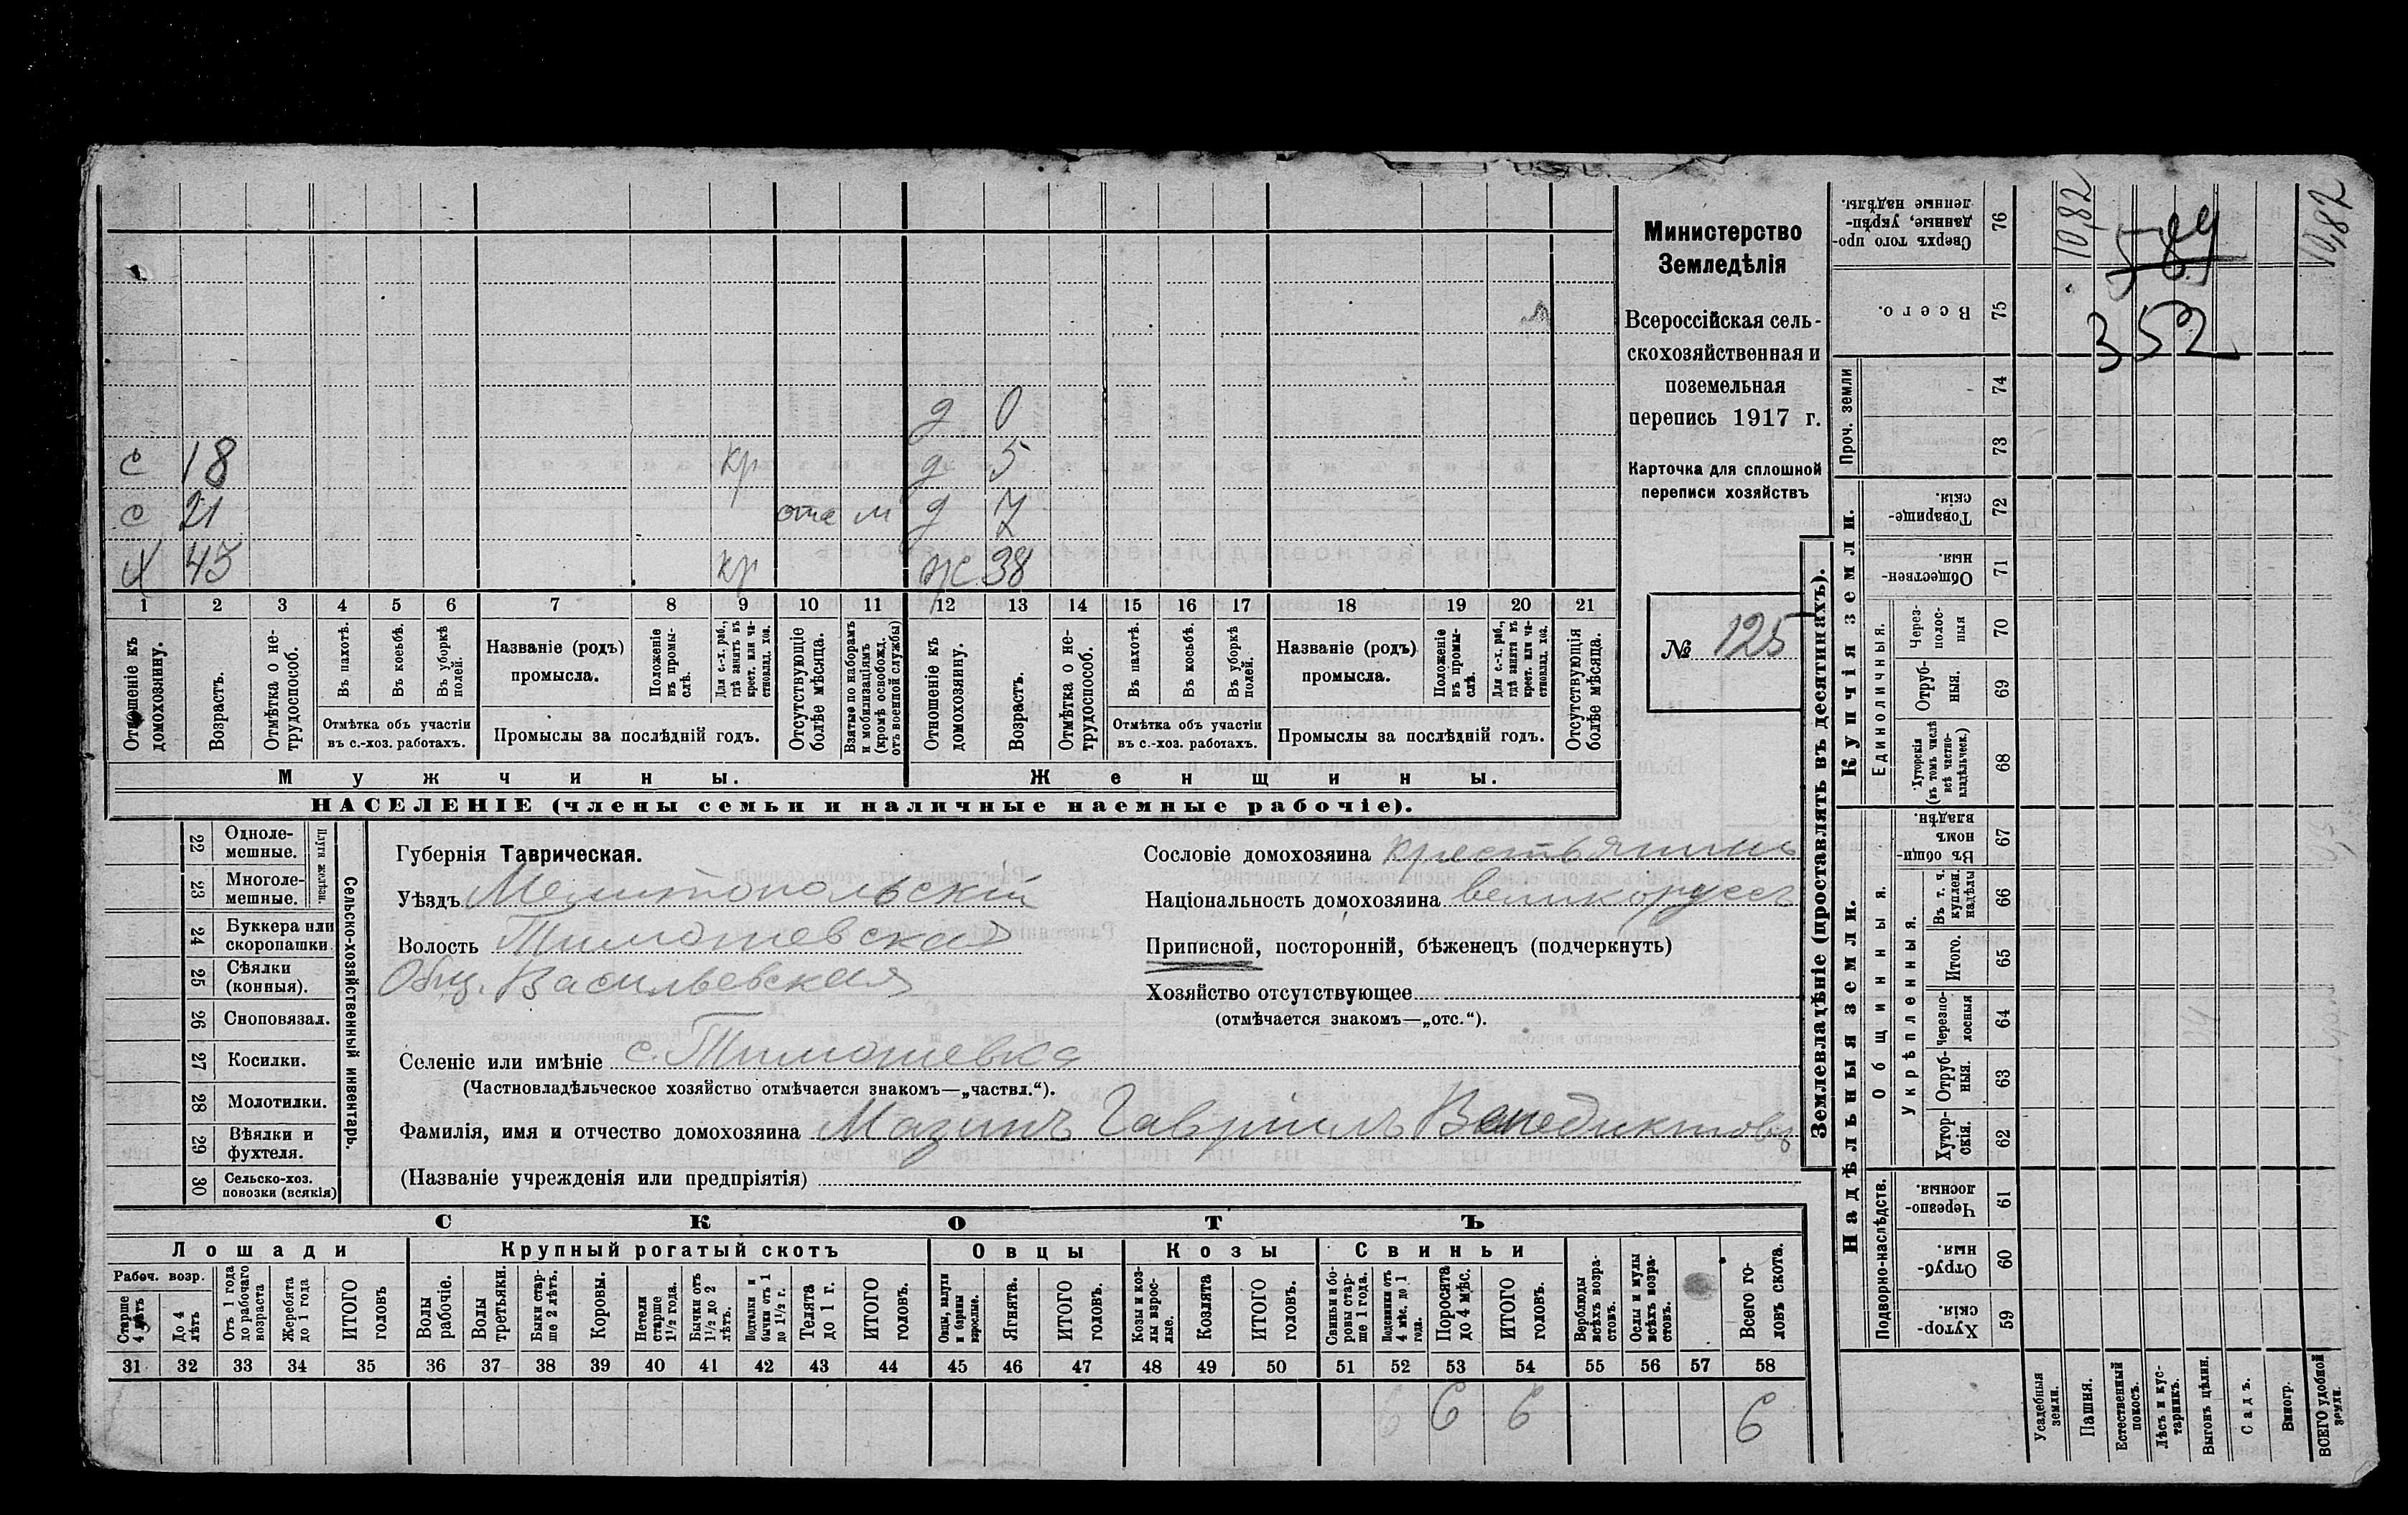 Министерство
Земледѣлія
Всероссійская сель-
скохозяйственная и
поземельная
перепись 1917 г.
Карточка для сплошной
переписи хозяйствъ
№ 125
д 0
с 18 кр д 5
с 21 отс м д 7
х 45 кр ж 38
1 2 3 4 5 6 7 8 9 10 11 12 13 14 15 16 17 18 19 20 21
Отношеніе къ домохозяину.
Возрастъ.
Отмѣтка о не-трудоспособ.
Въ пахотѣ.
Въ косьбѣ.
Въ уборкѣ полей.
Отмѣтка объ участіи
въ с.-хоз. работахъ.
Названіе (родъ)
промысла.
Положеніе въ промы-слѣ.
Для с.-х. раб., гдѣ занятъ въ крест. или ча-стновлад. хоз.
Промыслы за послѣдній годъ.
Отсутствующіе болѣе мѣсяца.
Взятые по наборамъ и мобилизаціямъ (кромѣ освобожд. отъ военной службы)
Отношеніе къ домохозяину.
Возрастъ.
Отмѣтка о не-трудоспособ.
Въ пахотѣ.
Въ косьбѣ.
Въ уборкѣ полей.
Отмѣтка объ участіи
въ с.-хоз. работахъ.
Названіе (родъ)
промысла.
Положеніе въ промы-слѣ.
Для с.-х. раб., гдѣ занята въ крест. или ча-стновлад. хоз.
Промыслы за послѣдній годъ.
Отсутствующія болѣе мѣсяца.
Мужчины. Женщины.
НАСЕЛЕНІЕ (члены семьи и наличные наемные рабочіе).
Сельско-хозяйственный инвентарь.
Плуги желѣзн.
22 Одноле-мешные.
23 Многоле-мешные.
24 Буккера или скоропашки.
25 Сѣялки (конныя).
26 Сноповязал.
27 Косилки.
28 Молотилки.
29 Вѣялки и фухтеля.
30 Сельско-хоз. повозки (всякія)
Губернія Таврическая.
Уѣздъ Мелитопольскій
Волость Тимошевская
Общ. Васильевская
Селеніе или имѣніе с. Тимошевка
(Частновладѣльческое хозяйство отмѣчается знакомъ—„частвл.“).
Фамилія, имя и отчество домохозяина Мазинъ Гавріилъ Венедиктовъ
(Названіе учрежденія или предпріятія)
Сословіе домохозяина крестьянинъ
Національность домохозяина великоруссъ
Приписной, посторонній, бѣженецъ (подчеркнуть)
Хозяйство отсутствующее
(отмѣчается знакомъ—„отс.“).
СКОТЪ
Лошади Крупный рогатый скотъ Овцы Козы Свиньи
Рабоч. возр.
Старше 4 лѣтъ
До 4 лѣтъ
Отъ 1 года до рабочаго возраста
Жеребята до 1 года
ИТОГО головъ
Волы рабочіе.
Волы третьяки.
Быки стар-ше 2 лѣтъ.
Коровы.
Нетели старше 1½ года.
Бычки отъ 1½ до 2 лѣтъ.
Подтелки и бычки отъ 1 до 1½ г.
Телята до 1 г.
ИТОГО головъ.
Овцы, валухи и бараны взрослые.
Ягнята.
ИТОГО головъ.
Козы и коз-лы взрос-лые.
Козлята
ИТОГО головъ.
Свиньи и бо-ровы стар-ше 1 года.
Подсвинки отъ 4 мѣс. до 1 года.
Поросята до 4 мѣс.
ИТОГО головъ.
Верблюды всѣхъ возра-стовъ.
Ослы и мулы всѣхъ возра-стовъ.
Всего го-ловъ скота.
31 32 33 34 35 36 37 38 39 40 41 42 43 44 45 46 47 48 49 50 51 52 53 54 55 56 57 58
6 6 6
Землевладѣніе (проставлять въ десятинахъ).
Надѣльныя земли. Купчія земли. Проч. земли
Подворно-наслѣдств.
Общинныя.
Укрѣпленныя.
Единоличныя.
Хутор-скія. 59
Отруб-ныя. 60
Черезпо-лосныя. 61
Хутор-скія. 62
Отруб-ныя. 63
Черезпо-лосныя 64
Итого. 65
Въ т. ч. куплен. надѣлы 66
Въ общин-номъ владѣн. 67
Хуторскія (въ томъ числѣ всѣ частно-владѣльческ.) 68
Отруб-ныя. 69
Через-полос-ныя 70
Обществен-ныя. 71
Товарище-скія. 72
73
74
Всего. 75
Сверхъ того про-данные, укрѣп-ленные надѣлы. 76
Усадебныя земли.
Пашня.
Естественный покосъ.
Лѣсъ и кус-тарникъ.
Выгонъ цѣлин.
Садъ.
Виногр.
ВСЕГО удобной земли.
10,82
10,82
352